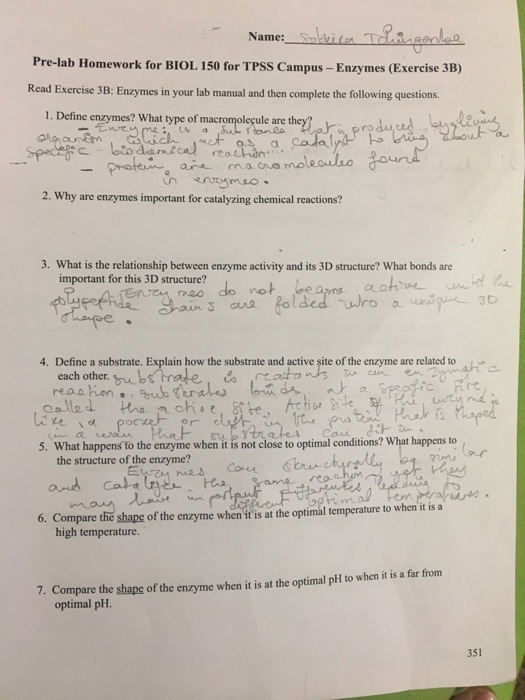 Name: Tchingonloe
Pre-lab Homework for BIOL 150 for TPSS Campus – Enzymes (Exercise 3B)
Read Exercise 3B: Enzymes in your lab manual and then complete the following questions.
1. Define enzymes? What type of macromolecule are they?
– Enzyme: is a substance that is produced by a living
organism which act as a catalyst to bring about a
specific biochemical reaction.
– protein are macromolecules found
in enzymes.
2. Why are enzymes important for catalyzing chemical reactions?
3. What is the relationship between enzyme activity and its 3D structure? What bonds are
important for this 3D structure?
Enzymes do not become active until the
polypeptide chains are folded into a unique 3D
shape.
4. Define a substrate. Explain how the substrate and active site of the enzyme are related to
each other. substrate is reactants in an enzymatic
reaction. substrates binds at a specific site,
called the active site. Active site of the enzyme is
like a pocket or cleft in the protein that is shaped
in a way that substrates can fit in.
5. What happens to the enzyme when it is not close to optimal conditions? What happens to
the structure of the enzyme?
Enzymes can structurally be similar
and catalyze the same reaction yet they
may have important differences leading to
different optimal temperatures.
6. Compare the shape of the enzyme when it is at the optimal temperature to when it is a
high temperature.
7. Compare the shape of the enzyme when it is at the optimal pH to when it is a far from
optimal pH.
351